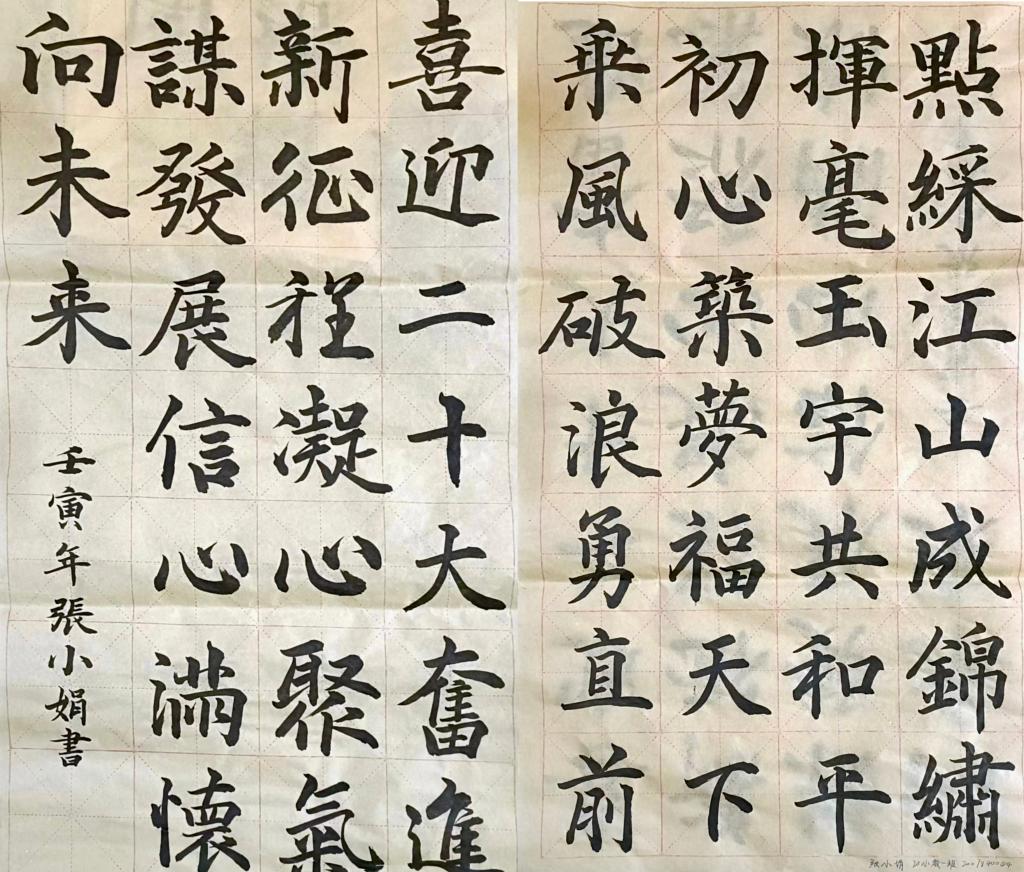 點綵江山成錦繡
揮毫玉宇共和平
初心築夢福天下
乗風破浪勇直前
张小娟 21小教一班
喜迎二十大奮進
新征程凝心聚氣
謀發展信心滿懷
向未来
壬寅年張小娟書